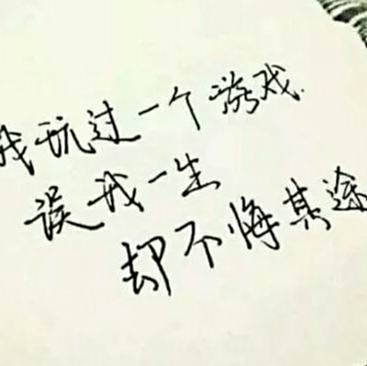 我玩过一个游戏.
误我一生
却不悔其途